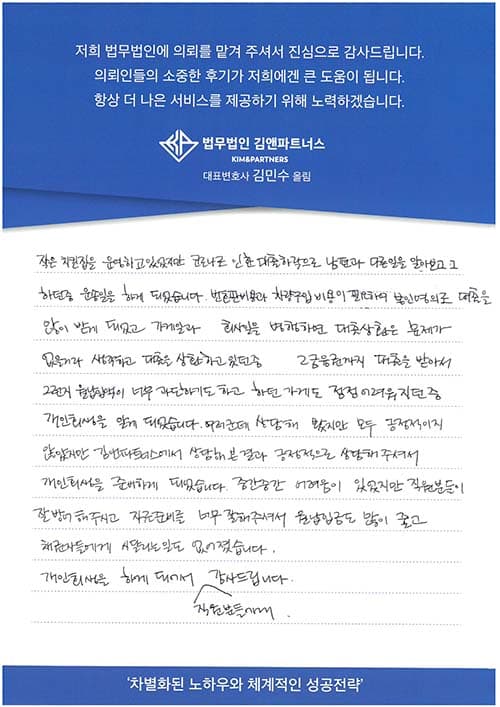 저희 법무법인에 의뢰를 맡겨 주셔서 진심으로 감사드립니다.
의뢰인들의 소중한 후기가 저희에겐 큰 도움이 됩니다.
항상 더 나은 서비스를 제공하기 위해 노력하겠습니다.
법무법인 김앤파트너스
KIM&PARTNERS
대표변호사 김민수 올림
작은 치킨집을 운영하고 있었지만 코로나로 인한 매출하락으로 남편과 다른일을 알아보고 그
하던중 운송일을 하게 되었습니다. 번호판비용과 차량구입 비용이 필요하여 본인명의로 대출을
많이 받게 되었고 가게일과 회사일을 병행하면 대출상환은 문제가
없을거라 생각하고 대출을 상환하고 있던중 고금융권까지 대출을 받아서
월납입액이 너무 과단하기도 하고 하던 가게도 점점 어려워지던중
개인회생을 알게 되었습니다. 여러군데 상담해 봤지만 모두 긍정적이지
않았지만 김앤파트너스에서 상담해 본 결과 긍정적으로 상담해주셔서
개인회생을 준비하게 되었습니다. 중간중간 어려움이 있었지만 직원분들이
잘 받아 해주시고 자료준비를 너무 잘해주셔서 월납입금도 많이 줄고
채권자들에게 시달리는일도 없어졌습니다.
개인회생을 하게 되어서 감사드립니다.
직원분들에게.
'차별화된 노하우와 체계적인 성공전략'